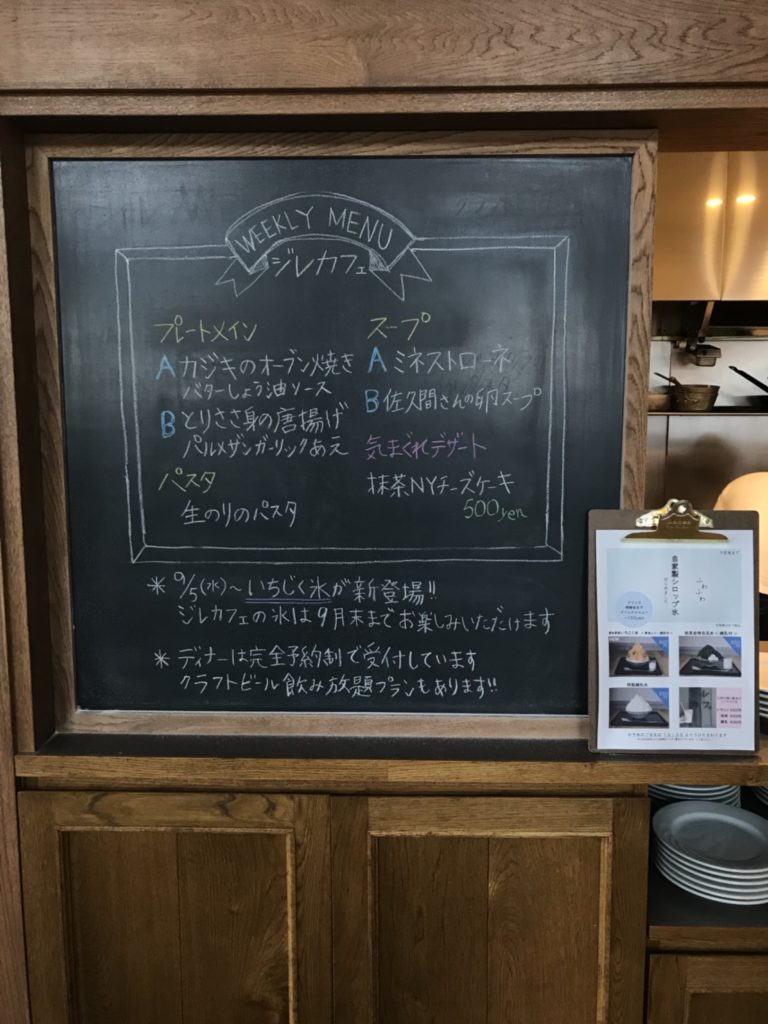 WEEKLY MENU
ジレカフェ
プレートメイン
A カジキのオーブン焼き
バターしょう油ソース
B とりささ身の唐揚げ
パルメザンガーリックあえ
パスタ
生のりのパスタ
スープ
A ミネストローネ
B 佐久間さんの卵スープ
気まぐれデザート
抹茶NYチーズケーキ
500yen
* 9/5(水)~いちじく氷が新登場!!
ジレカフェの氷は9月末までお楽しみいただけます
* ディナーは完全予約制で受付しています
クラフトビール飲み放題プランもあります!!
ふわふわ
自家製シロップ氷
はじめました